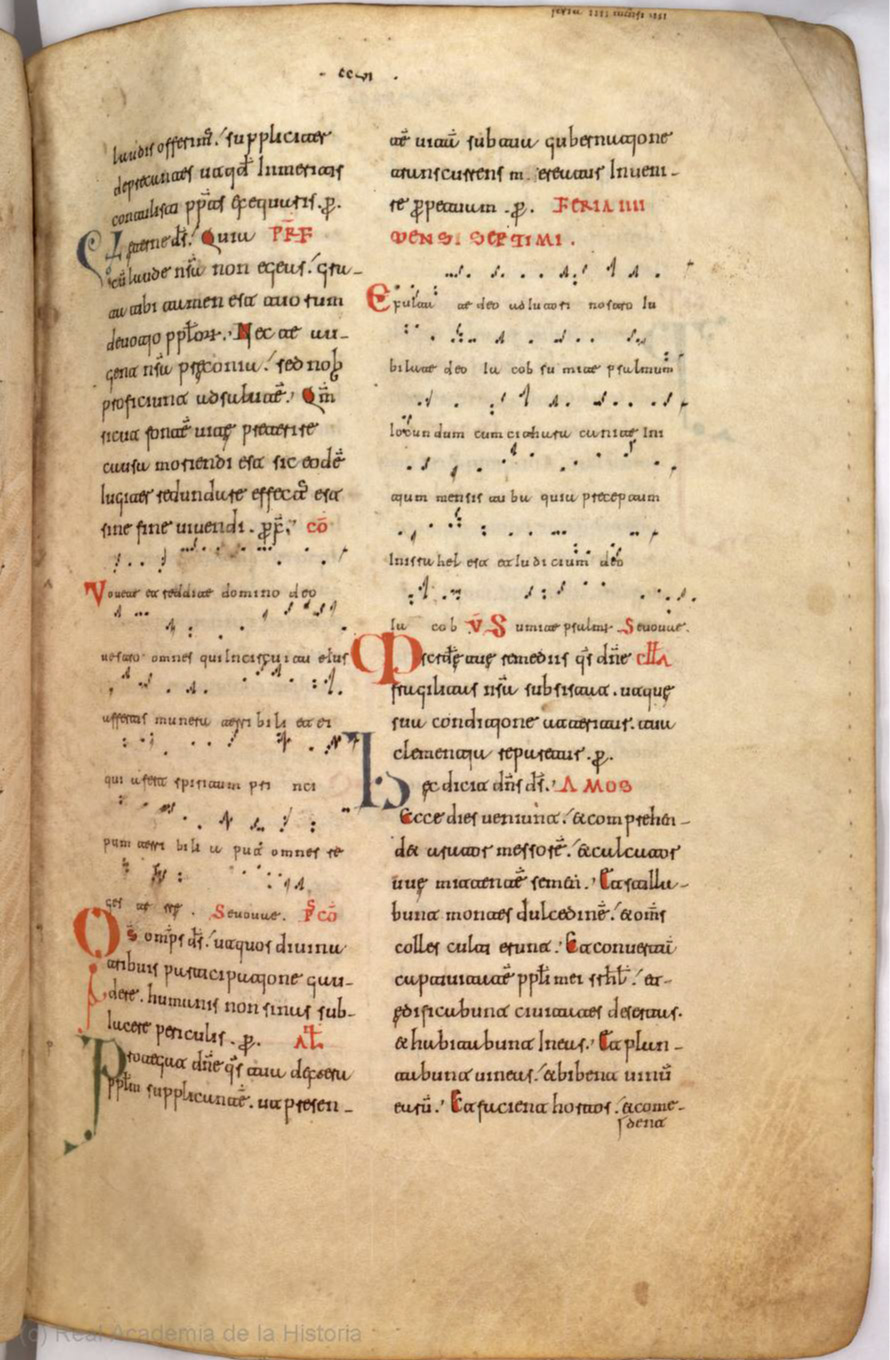 feria iiii mensis vii
ccvi
laudis offerim̄. suppliciter
deprecantes ut qd̄ Inmeritis
contulisti pp̄as exequuris. p̄.
Eterne ds̄. Quia PRF
cū laude nsā non egeas. gra-
ta tibi tamen est tuorum
devotio pplōrū. Nec te au-
gent nsā preconia. sed nob
proficiunt ad salutē. Qm̄
sicut fontē vite preterire
causa moriendi est sic eodē
Iugiter redundare effectū est
sine fine vivendi. p̄. cō
Vovete et reddite domino deo
vestro omnes qui Incircuitu eius
affertis munera terri bili et ei
qui aufert spiritum prin ci
pum terri bili a put omnes re
ges ter re. Sevovae. P̄cō
Omp̄s ds̄. ut quos divina
tribuis participatione gau-
dere. humanis non sinas sub-
Iacere periculis. p̄. AL̄
Protegat dn̄e qs̄ tua dextera
pplm̄ supplicantē. ut presen-
te vitā sub tua gubernatione
transcurrens m ereatur Inveni-
re p̄petuum. p̄. FERIA IIII
MENSI SEPTIMI.
Exultate deo adiutori nostro Iu
bilate deo Ia cob su mite psalmum
Iocundum cum cithara canite Ini
tium mensis tu ba quia preceptum
Inisrahel est et Iudicium deo
Ia cob V̄S umite psalm̄ Sevovae.
Miscd̄ię tuę remediis qs̄ dn̄e
fragilitas nsā subsistat. ut quę
sua conditione ut atteritur. tua
clementia reparetur. p̄.
Hęc dicit dn̄s ds̄. AMOS
Ecce dies veniunt. et comprehen-
det arator messorē. et calcator
uvę mittentē semen. Et stilla-
bunt montes dulcedinē. et om̄s
colles culti erunt. Et convertā
captivitatē pplī mei srhl̄. et
ędificabunt civitates desertas.
et habitabunt Ineas. Et plan-
tabunt vineas. et bibent vinū
earū. Et facient hortos. et come-
dent
(c) Real Academia de la Historia